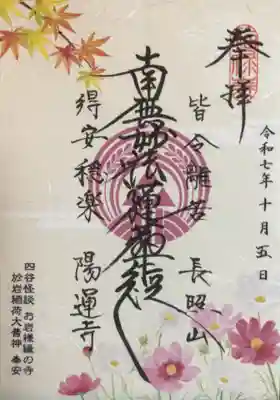 奉拝
令和七年十月五日
皆令離苦 長照山
南無妙法蓮華経
得安穏楽 陽運寺
四谷怪談 お岩様縁の寺
於岩稲荷大善神 奉安